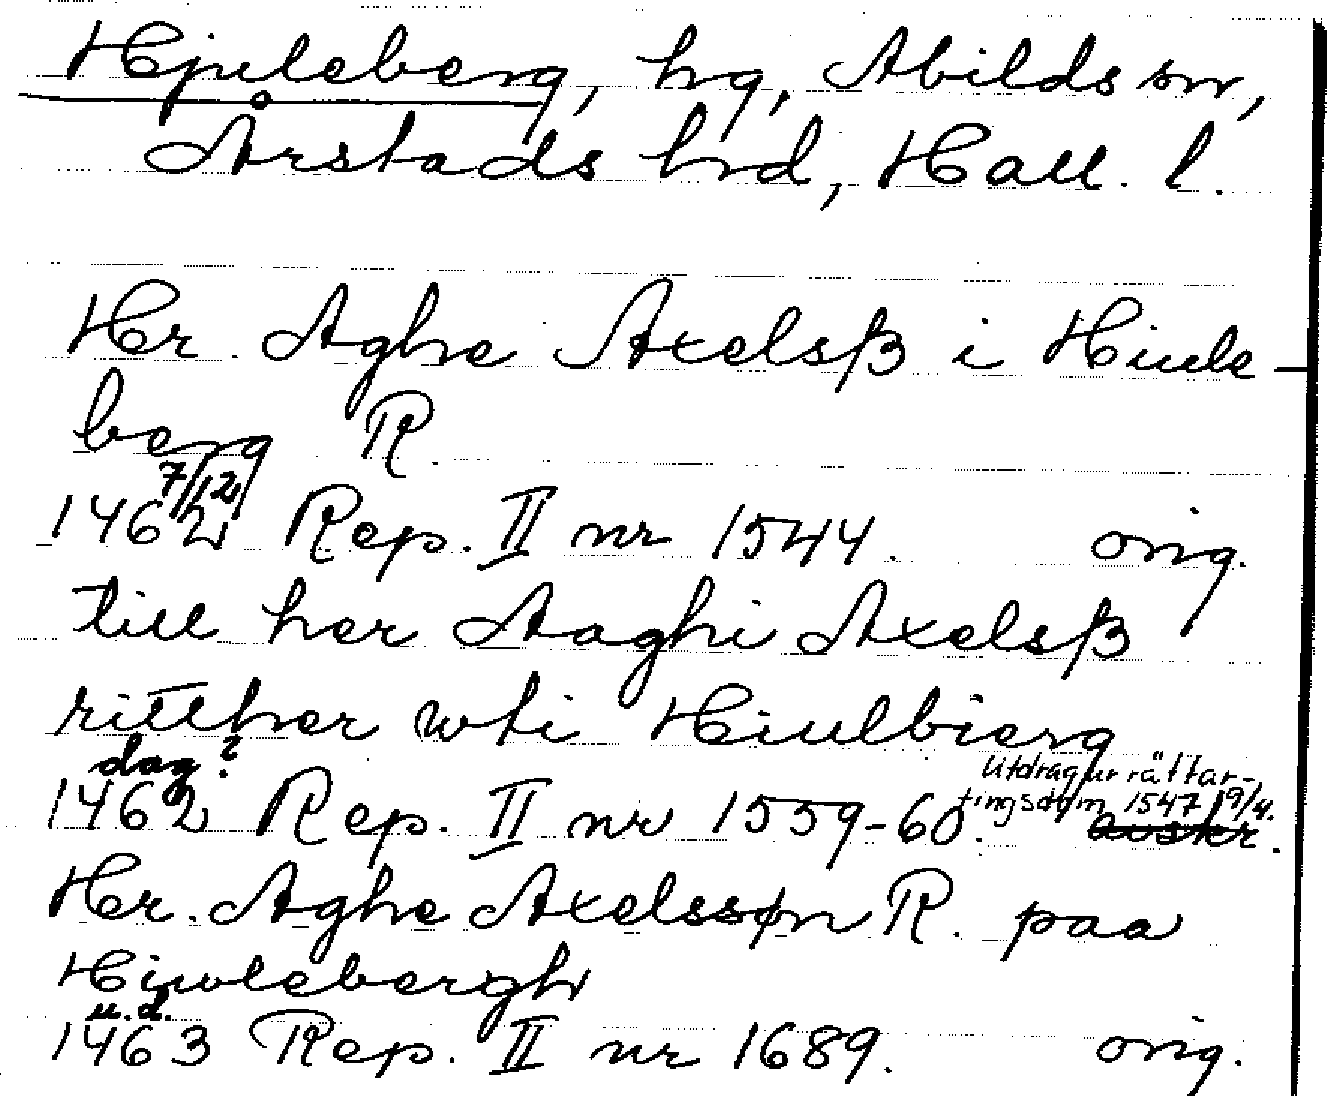 Hjuleberg, hg, Abilds sn,
Årstads hrd, Hall. l.
Hr. Aghe Axelsß i Hiule-
berg R.
7/12
1462 Rep. II nr 1544. orig.
till her Aaghi Axelsß
ritther wti Hiulbierg
dag? Utdrag ur rättar-
1462 Rep. II nr 1559-60. tingsdom 1547 19/4.
Hr. Aghe Axelssøn R. paa
Hiwlebergh
u.d.
1463 Rep. II nr 1689. orig.